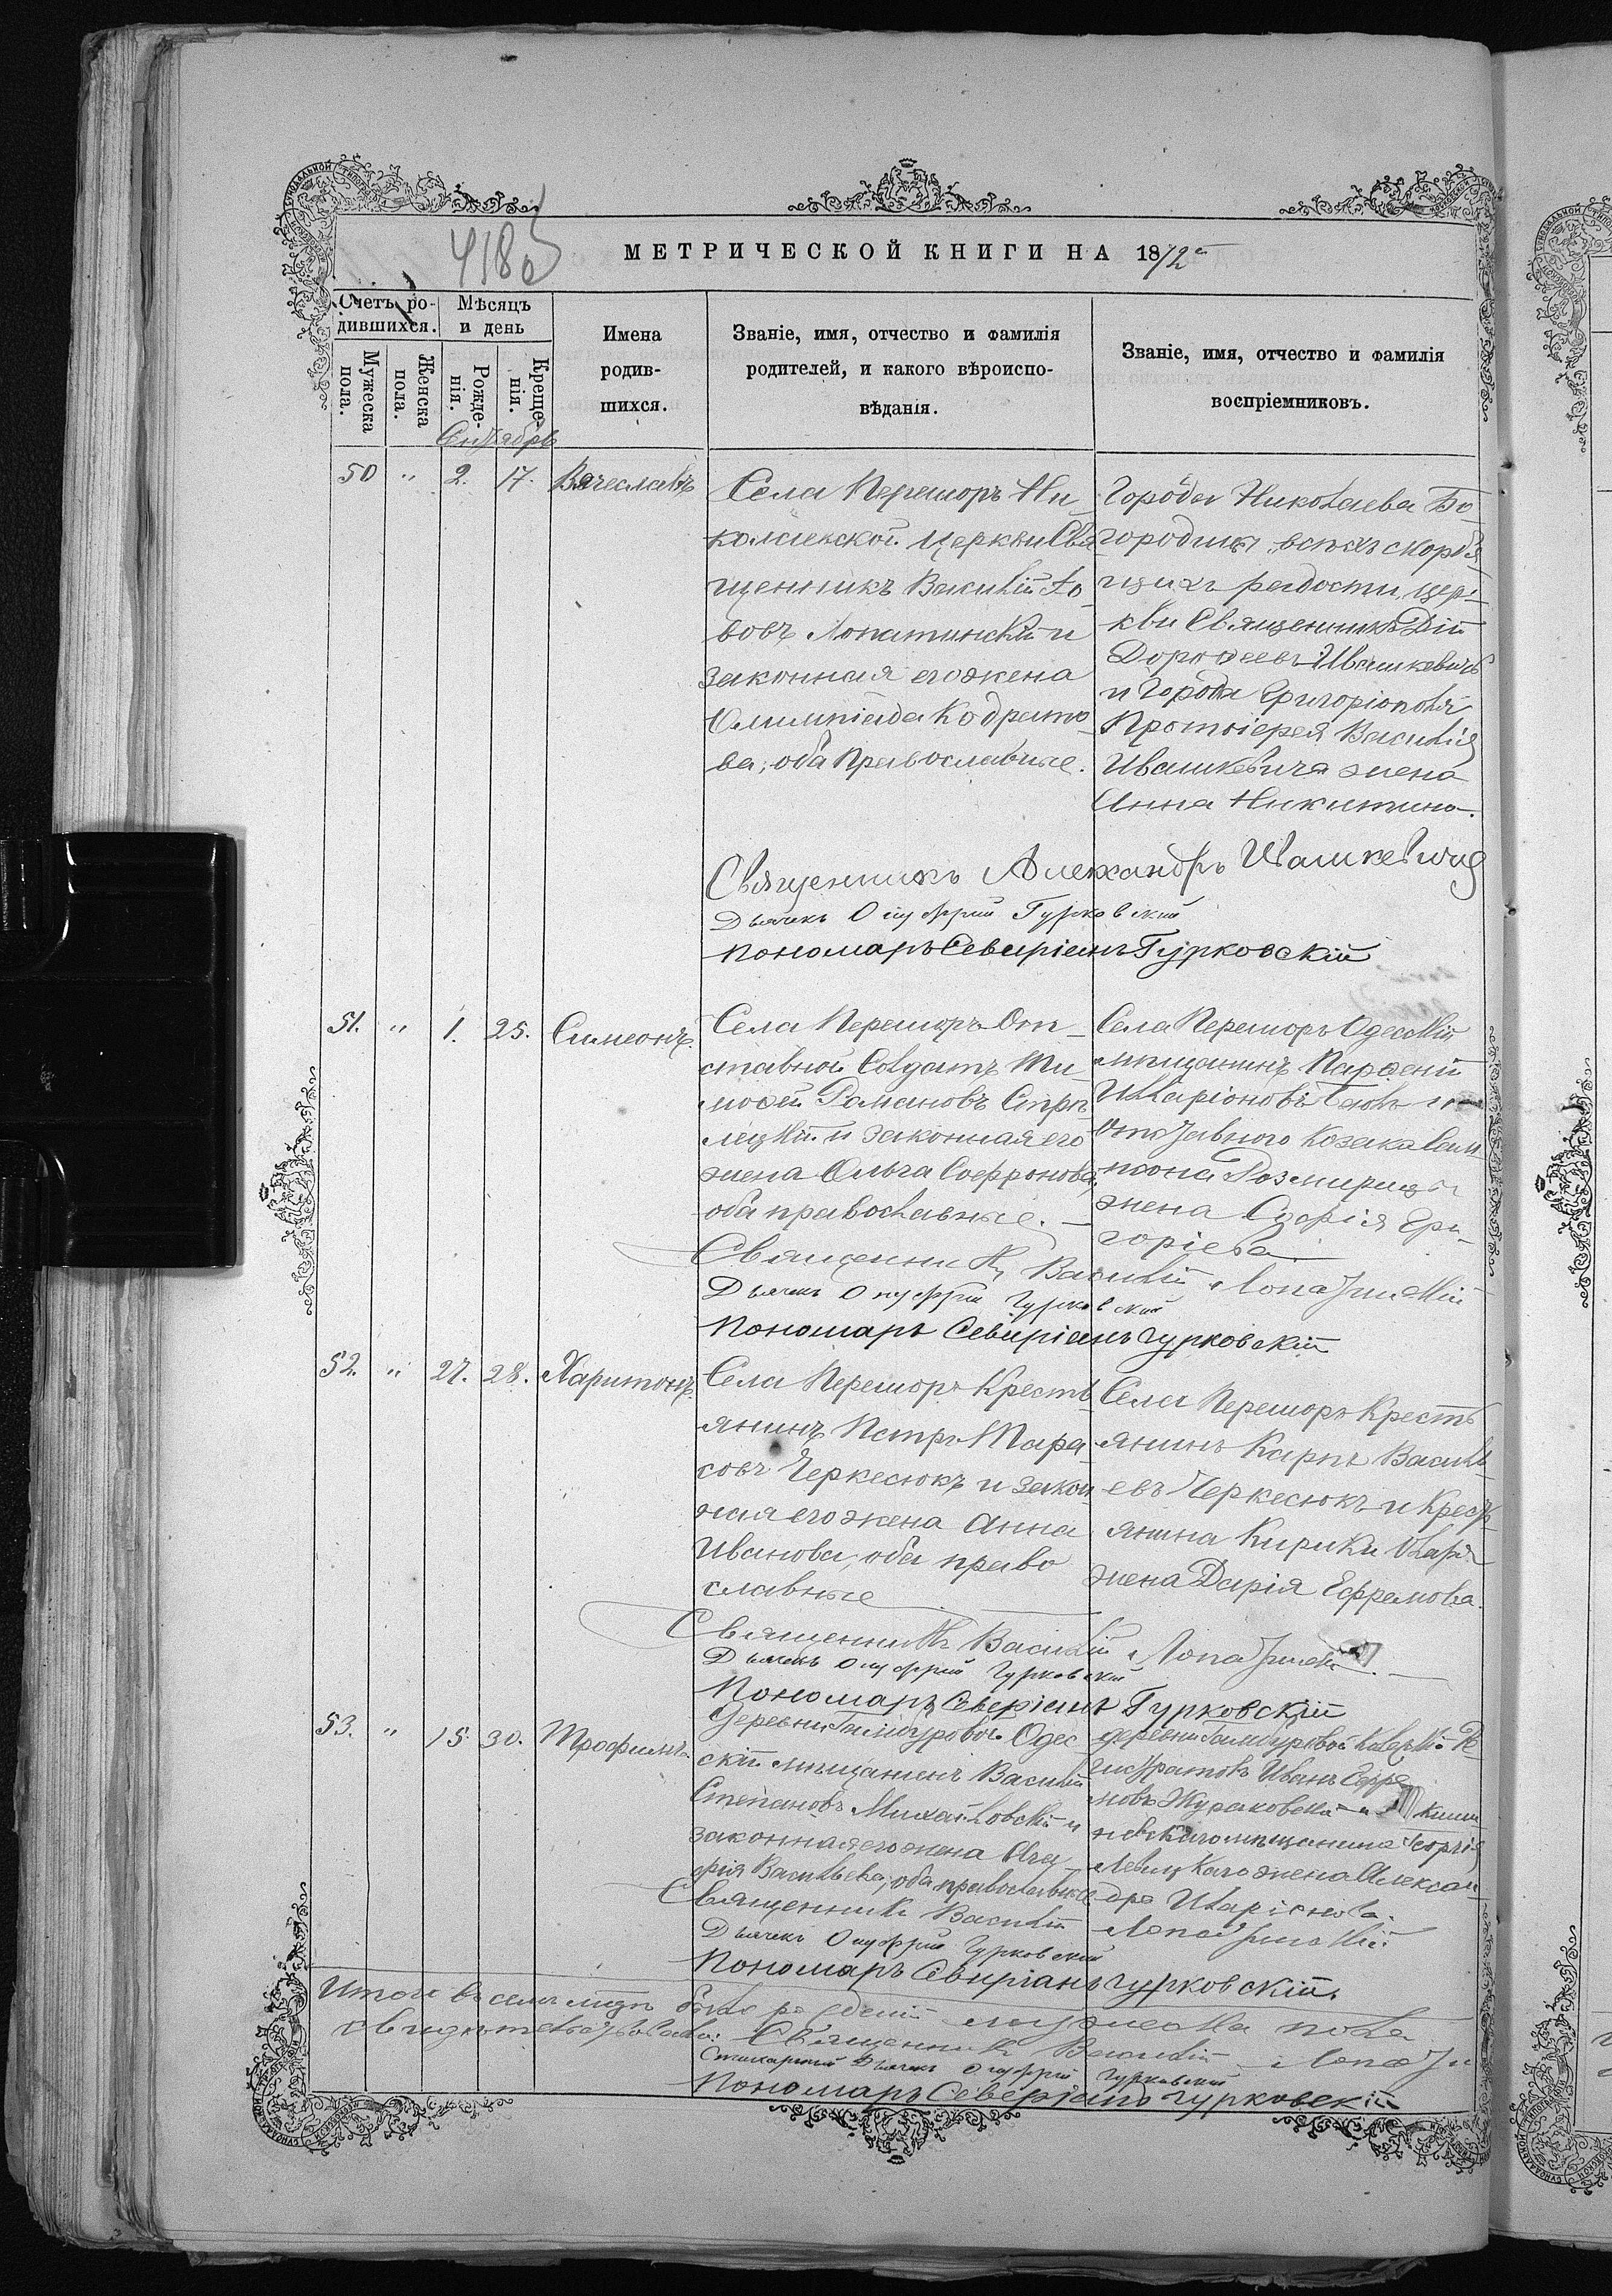 4180
МЕТРИЧЕСКОЙ КНИГИ НА 1872 г
Счетъ ро-
дившихся.
Мѣсяцъ
и день
Мужеска
пола.
Женска
пола.
Рожде-
нія.
Креще-
нія.
Имена
родив-
шихся.
Званіе, имя, отчество и фамилія
родителей, и какого вѣроиспо-
вѣданія.
Званіе, имя, отчество и фамилія
воспріемниковъ.
Сентябрь
50 " 2. 17. Вячеславъ
Села Перешоръ Ни-
колаевской Церкви Свя
щенникъ Василій Іо-
вовъ Лопатинскій и
законная его жена
Олимпіада Кодрато-
ва, оба Православные.
Города Николаева Бо-
городицы всѣхъ скорбя
щихъ радости, цер-
кви Священникъ Дій
Дорофеевъ Ивашкевичъ
и Города Григоріополя
Протоіерея Василія
Ивашкевича жена
Анна Никитина.
Священникъ Александръ Ивашкевичъ
Дьячекъ Онуфрій Гурковскій
Пономарь Севиріанъ Гурковскій
51. " 1. 25. Симеонъ.
Села Перешоръ От-
ставной Солдатъ Ти-
мофей Романовъ Стрѣ
лецкій и законная его
жена Ольга Софронова,
оба православные.
Села Перешоръ Одесскій
мѣщанинъ Парфеній
Илларіоновъ и
Отставного Козака Сам-
псона Розмирицы
жена Софія Гри-
горіева
Священникъ Василій Лопатинскій
Дьячекъ Онуфрій Гурковскій
Пономарь Севиріанъ Гурковскій
52. " 27. 28. Харитонъ.
Села Перешоръ Кресть
янинъ Петръ Тара-
совъ Черкесюкъ и закон
ная его жена Анна
Иванова, оба право
славные
Села Перешоръ Кресть
янинъ Карпъ Василь-
евъ Черкесюкъ и Крест
янина Кирики
жена Дарія Ефремова.
Священникъ Василій Лопатинскій
Дьячекъ Онуфрій Гурковскій
Пономарь Севиріанъ Гурковскій
53. " 15. 30. Трофимъ.
Деревни Гамбуровой Одес-
скій мѣщанинъ Василій
Степановъ Михайловскій и
законная его жена Ага
фія Васильева, оба православные
деревни Гамбуровой Колежскій Ре
гистраторъ Иванъ Ефре
мовъ Жураковскій и Киши
невскаго мѣщанина Георгія
Левицкаго жена Алексан
дра Иларіонова.
Священникъ Василій Лопатинскій
Дьячекъ Онуфрій Гурковскій
Пономарь Севиріанъ Гурковскій.
Итого въ семъ мѣсяцѣ было рожденій мужеска пола
свидѣтельствовали: Священникъ Василій
Стихарный Дьячекъ Онуфрій Гурковскій
Пономарь Севиріанъ Гурковскій